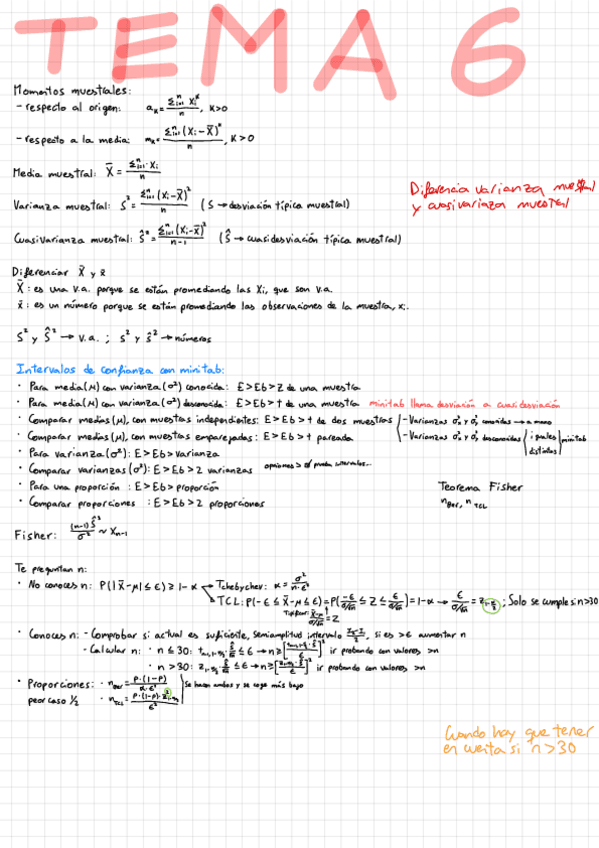 TEMA 6
Momentos muestrales:
- respecto al origen: aₖ = Σⁿᵢ₌₁ Xᵢᴷ / n, K>0
- respecto a la media: mₖ = Σⁿᵢ₌₁ (Xᵢ - X̄)ᴷ / n, K>0
Media muestral: X̄ = Σⁿᵢ₌₁ Xᵢ / n
Varianza muestral: S² = Σⁿᵢ₌₁ (Xᵢ - X̄)² / n (S → desviación típica muestral)
Cuasivarianza muestral: Ŝ² = Σⁿᵢ₌₁ (Xᵢ - X̄)² / n-1 (Ŝ → cuasidesviación típica muestral)
Diferencia varianza muestral
y cuasivariaza muestral
Diferenciar X̄ y x̄
X̄ : es una v.a. porque se están promediando las Xᵢ, que son v.a.
x̄ : es un número porque se están promediando las observaciones de la muestra, xᵢ.
S² y Ŝ² → v.a. ; s² y ŝ² → números
Intervalos de confianza con minitab:
· Para media(μ) con varianza(σ²) conocida: E>Eb>Z de una muestra
· Para media(μ) con varianza(σ²) desconocida: E>Eb>t de una muestra minitab llama desviación a cuasidesviación
· Comparar medias(μ), con muestras independientes: E>Eb>t de dos muestras - Varianzas conocidas → a mano
· Comparar medias(μ), con muestras emparejadas: E>Eb>t pareada - Varianzas desconocidas iguales distintas minitab
· Para varianza(σ²): E>Eb>varianza
· Comparar varianzas(σ²): E>Eb>2 varianzas opciones > prueba intervalos...
· Para una proporción : E>Eb>proporción
· Comparar proporciones : E>Eb>2 proporciones
Teorema Fisher
n_TCL
Fisher: (n-1)Ŝ² / σ² ~ Xₙ₋₁
Te preguntan n:
· No conoces n: P(|X̄-μ| ≤ ε) ≥ 1-α → Tchebychev: α = σ² / n·ε²
→ TCL: P(-ε ≤ X̄-μ ≤ ε) = P(-ε / σ/√n ≤ Z ≤ ε / σ/√n) = 1-α → ε / σ/√n = z₁₋α/₂ ; Solo se cumple si n>30
Tipificar: X̄-μ / σ/√n = Z
· Conoces n: - Comprobar si actual es suficiente, semiamplitud intervalo, si es >ε aumentar n
- Calcular n: · n ≤ 30: ir probando con valores >n
· n > 30: ir probando con valores >n
· Proporciones: · P·(1-P) / α·ε² Se hacen ambos y se coge más bajo
peor caso 1/2 · n_TCL = P·(1-P)·z²₁₋α/₂ / ε²
Cuando hay que tener
en cuenta si n>30